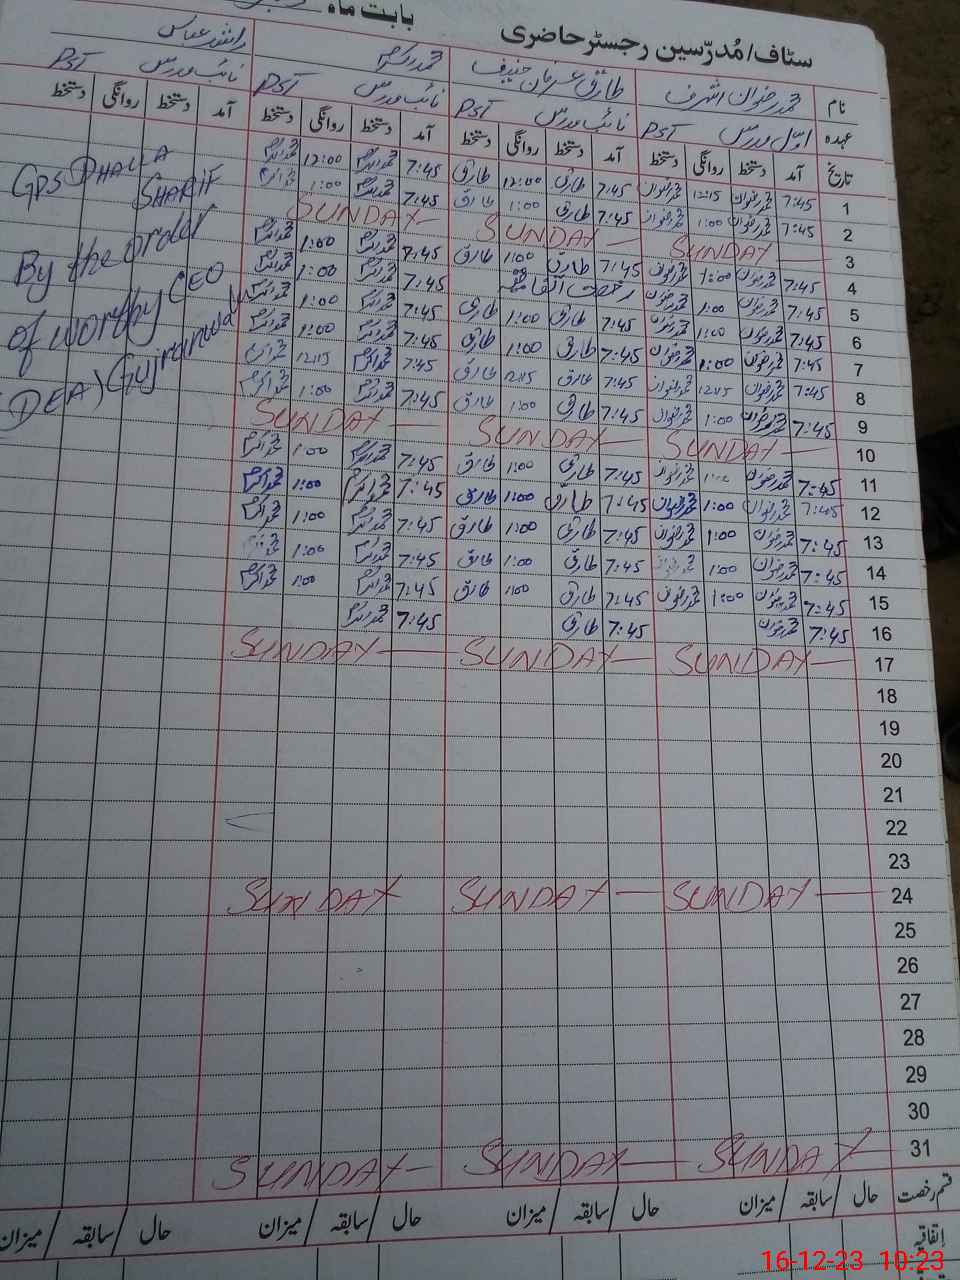 بابت ماہ
سٹاف/مُدرّسین رجسٹر حاضری
نام محمد رضوان اشرف طارق عرفان حنیف محمد اکرم راشد عباس
عہدہ PST نائب مدرس PST نائب مدرس PST نائب مدرس PST
تاریخ آمد دستخط روانگی دستخط آمد دستخط روانگی دستخط آمد دستخط روانگی دستخط آمد دستخط روانگی دستخط
1 7:45 محمد رضوان 12:15 محمد رضوان 7:45 طارق 12:00 طارق 7:45 محمد اکرم 12:00 محمد اکرم
2 7:45 محمد رضوان 1:00 محمد رضوان 7:45 طارق 1:00 طارق 7:45 محمد اکرم 1:00 محمد اکرم
3 SUNDAY SUNDAY SUNDAY
4 7:45 محمد رضوان 1:00 محمد رضوان 7:45 طارق 1:00 طارق 7:45 محمد اکرم 1:00 محمد اکرم
5 7:45 محمد رضوان 1:00 محمد رضوان رخصت اتفاقیہ 7:45 محمد اکرم 1:00 محمد اکرم
6 7:45 محمد رضوان 1:00 محمد رضوان 7:45 طارق 1:00 طارق 7:45 محمد اکرم 1:00 محمد اکرم
7 7:45 محمد رضوان 1:00 محمد رضوان 7:45 طارق 1:00 طارق 7:45 محمد اکرم 1:00 محمد اکرم
8 7:45 محمد رضوان 12:15 محمد رضوان 7:45 طارق 12:15 طارق 7:45 محمد اکرم 12:15 محمد اکرم
9 7:45 محمد رضوان 1:00 محمد رضوان 7:45 طارق 1:00 طارق 7:45 محمد اکرم 1:00 محمد اکرم
10 SUNDAY SUNDAY SUNDAY
11 7:45 محمد رضوان 1:00 محمد رضوان 7:45 طارق 1:00 طارق 7:45 محمد اکرم 1:00 محمد اکرم
12 7:45 محمد رضوان 1:00 محمد رضوان 7:45 طارق 1:00 طارق 7:45 محمد اکرم 1:00 محمد اکرم
13 7:45 محمد رضوان 1:00 محمد رضوان 7:45 طارق 1:00 طارق 7:45 محمد اکرم 1:00 محمد اکرم
14 7:45 محمد رضوان 1:00 محمد رضوان 7:45 طارق 1:00 طارق 7:45 محمد اکرم 1:00 محمد اکرم
15 7:45 محمد رضوان 1:00 محمد رضوان 7:45 طارق 1:00 طارق 7:45 محمد اکرم 1:00 محمد اکرم
16 7:45 محمد رضوان 7:45 طارق 7:45 محمد اکرم
17 SUNDAY SUNDAY SUNDAY
18
19
20
21
22
23
24 SUNDAY SUNDAY SUNDAY
25
26
27
28
29
30
31 SUNDAY SUNDAY SUNDAY
GPS DHALLA
SHARIF
By the order
of worthy CEO
(DEA) Gujranwala
قسم رخصت حال سابقہ میزان حال سابقہ میزان حال سابقہ میزان حال سابقہ میزان
اتفاقیہ
16-12-23 10:23